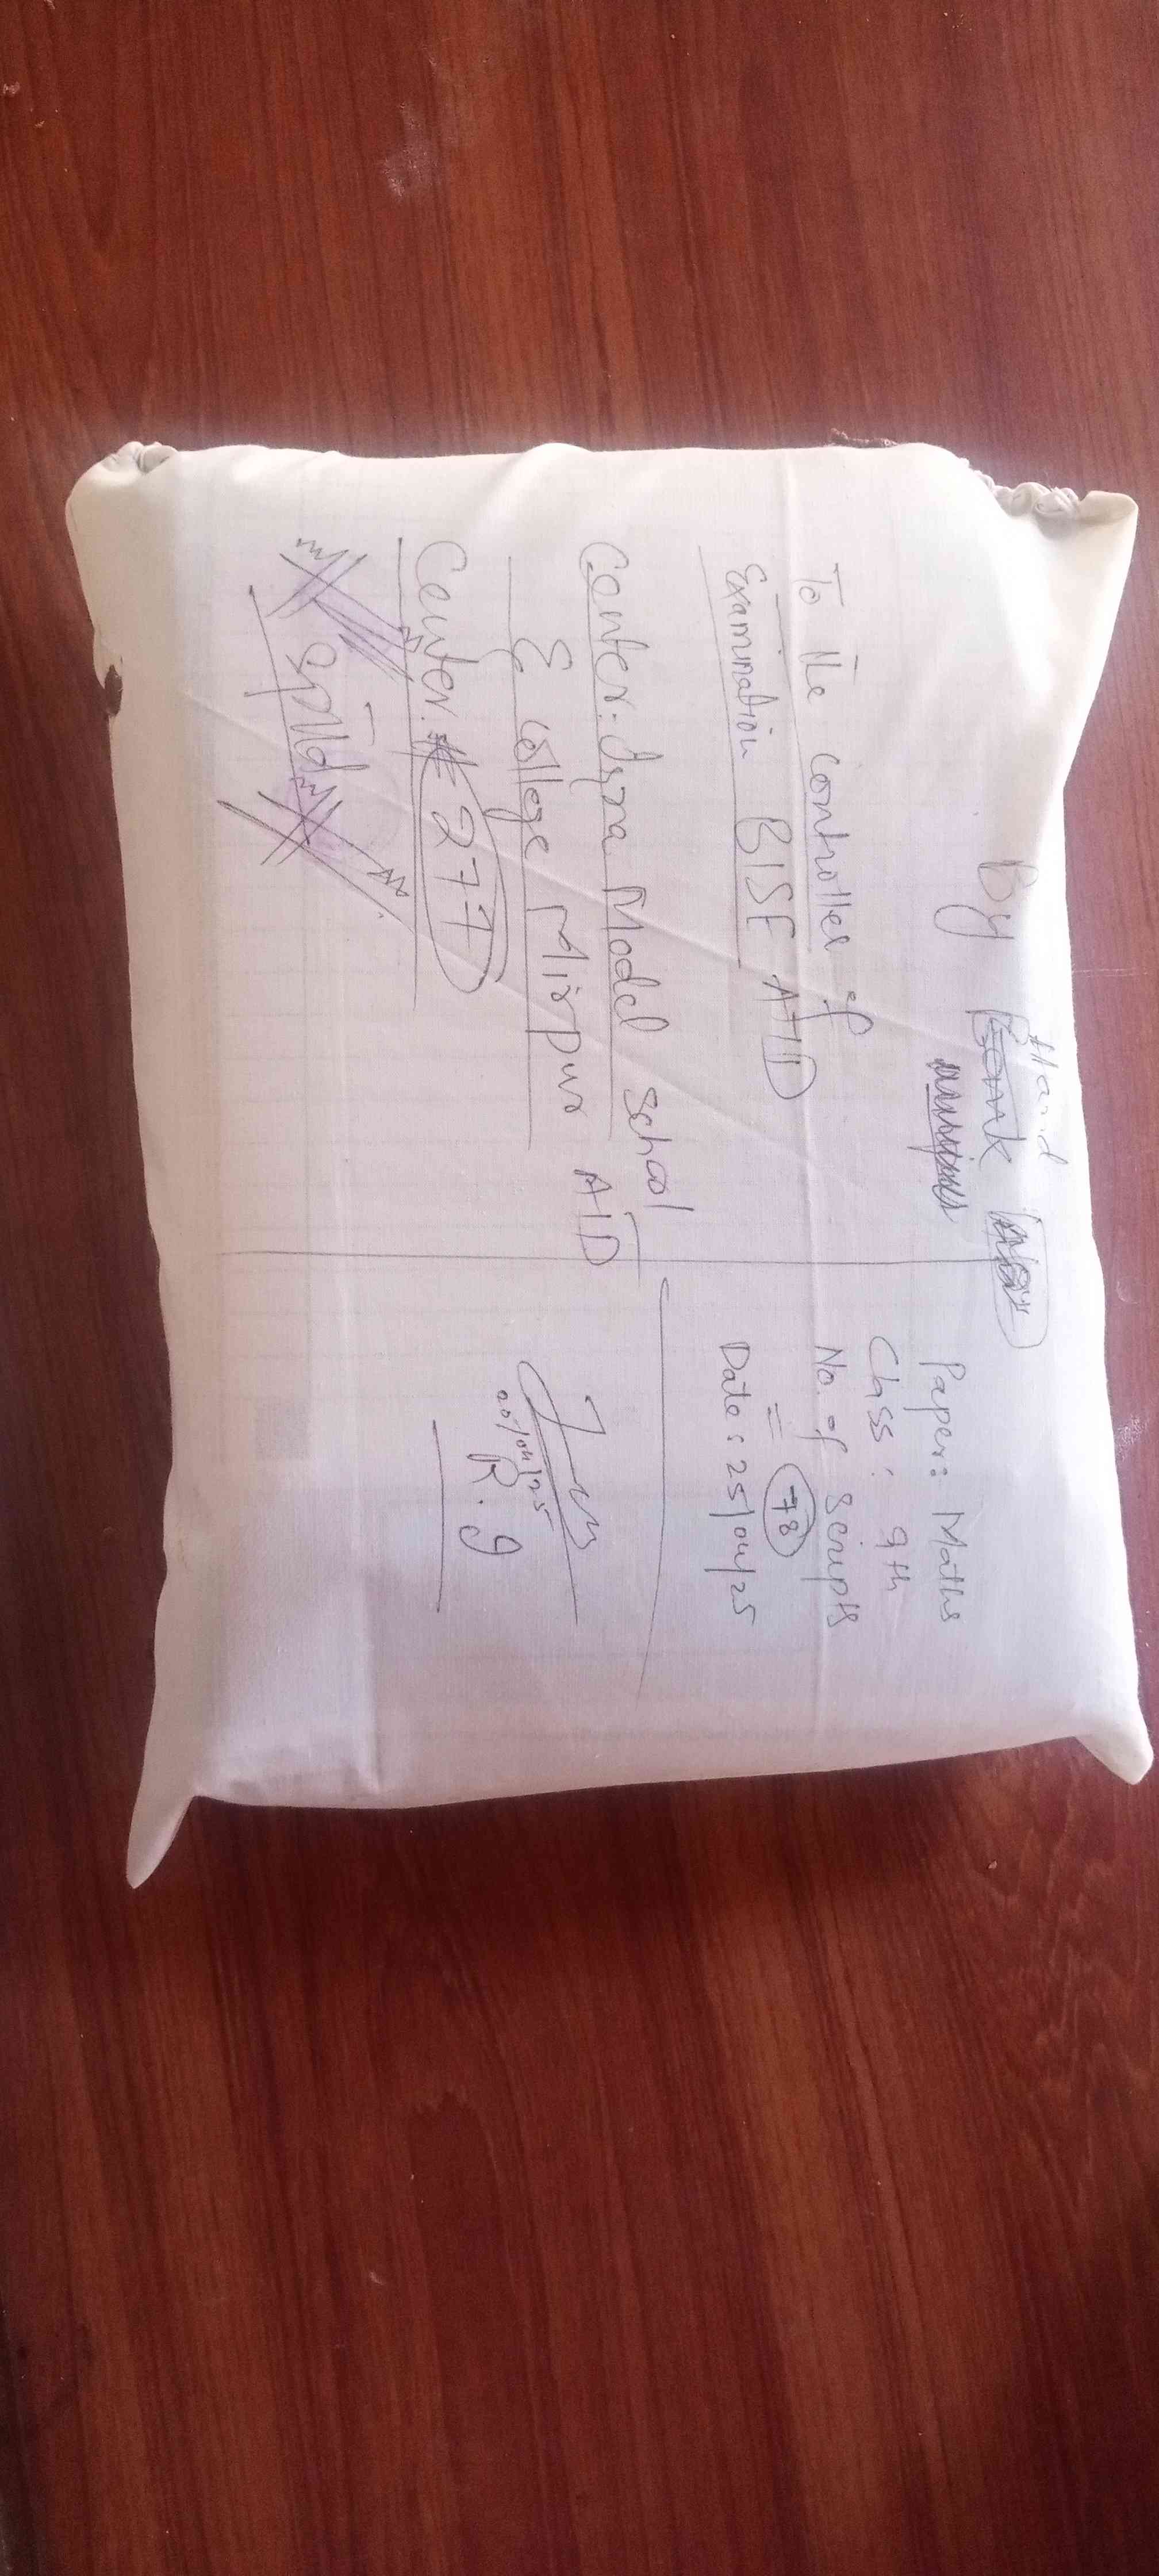 By Hand
To the controller of
Examination BISE ATD
Center: Iqra Model School
& College Mirpur ATD
Center # 277
Paper: Maths
Class: 9th
No. of scripts
= 78
Date: 25/04/25
25/04/25
R.9